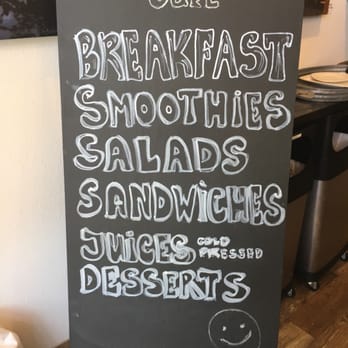 BREAKFAST
SMOOTHiES
SALADS
SANDWiCHES
JUiCES COLD PRESSED
DESSERTS